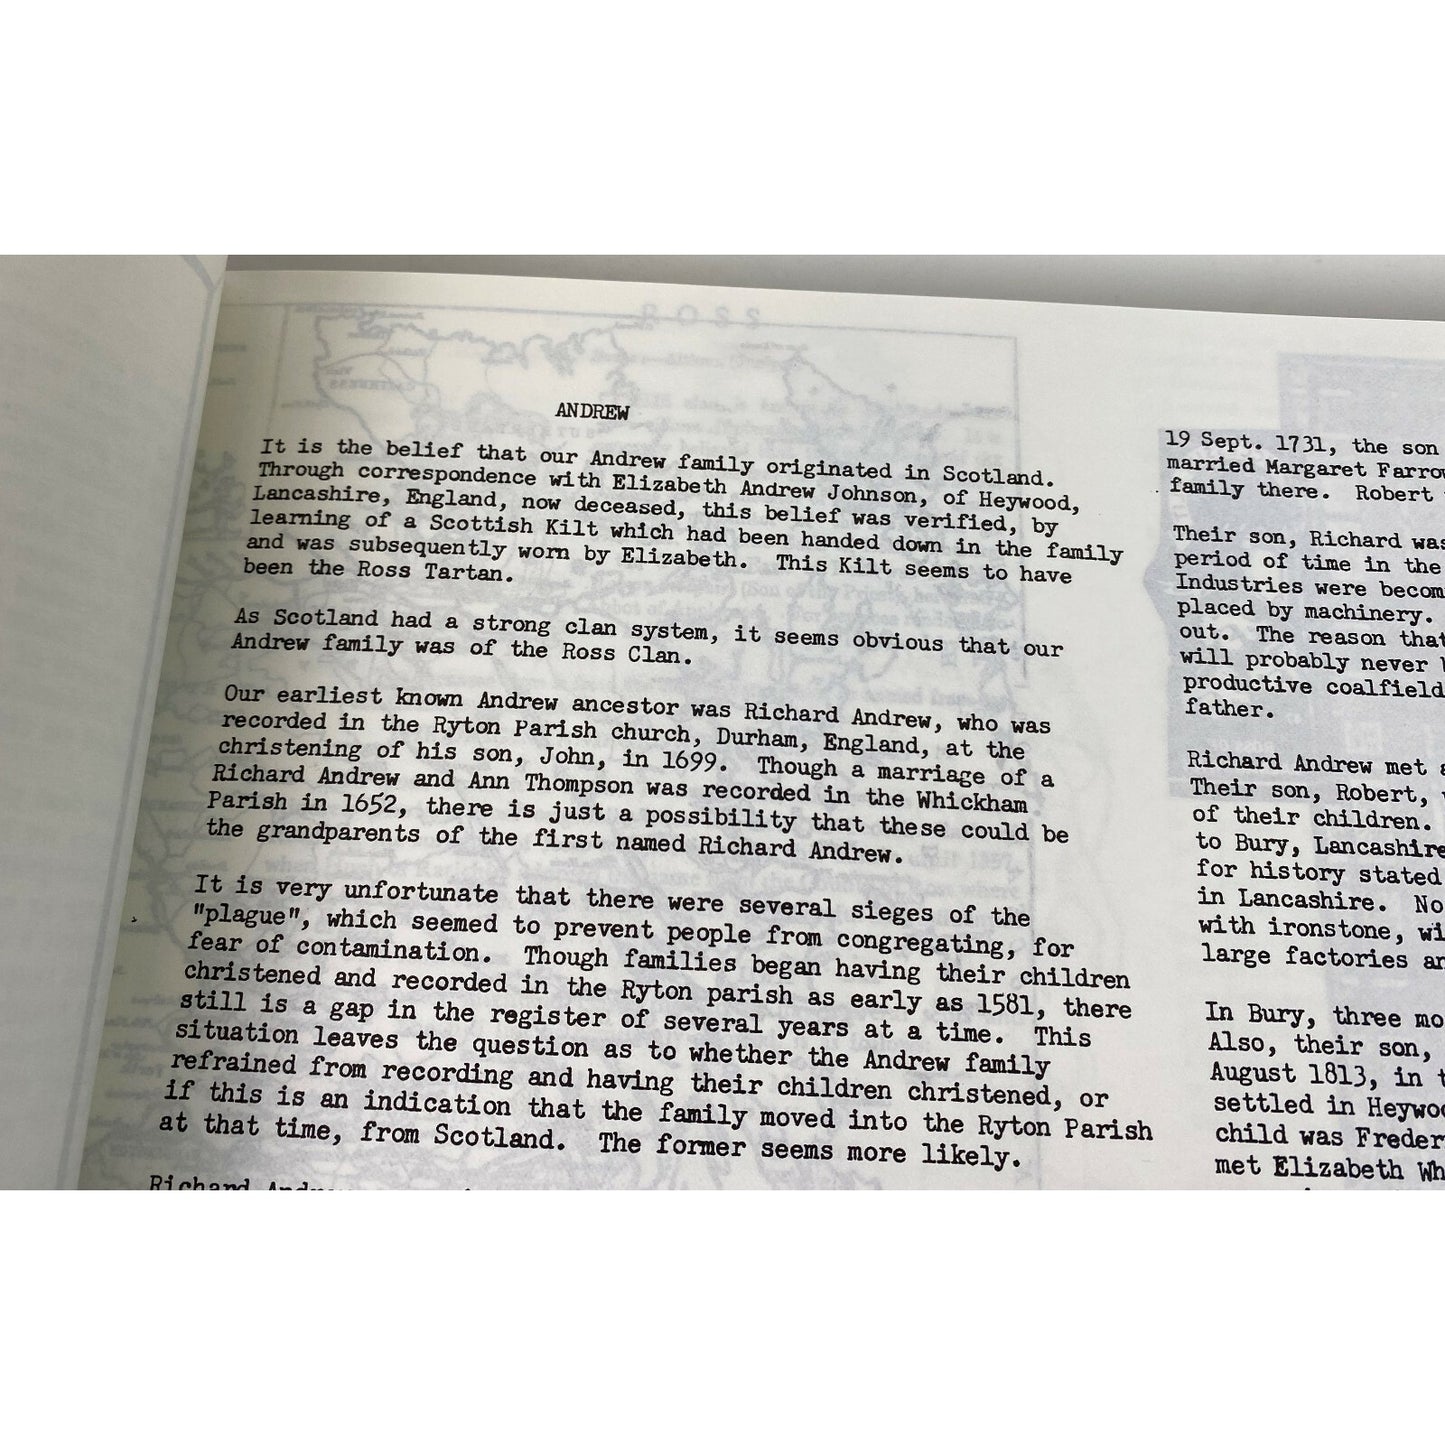 ROSS
ANDREW
It is the belief that our Andrew family originated in Scotland.
Through correspondence with Elizabeth Andrew Johnson, of Heywood,
Lancashire, England, now deceased, this belief was verified, by
learning of a Scottish Kilt which had been handed down in the family
and was subsequently worn by Elizabeth. This Kilt seems to have
been the Ross Tartan.
As Scotland had a strong clan system, it seems obvious that our
Andrew family was of the Ross Clan.
Our earliest known Andrew ancestor was Richard Andrew, who was
recorded in the Ryton Parish church, Durham, England, at the
christening of his son, John, in 1699. Though a marriage of a
Richard Andrew and Ann Thompson was recorded in the Whickham
Parish in 1652, there is just a possibility that these could be
the grandparents of the first named Richard Andrew.
It is very unfortunate that there were several sieges of the
"plague", which seemed to prevent people from congregating, for
fear of contamination. Though families began having their children
christened and recorded in the Ryton parish as early as 1581, there
still is a gap in the register of several years at a time. This
situation leaves the question as to whether the Andrew family
refrained from recording and having their children christened, or
if this is an indication that the family moved into the Ryton Parish
at that time, from Scotland. The former seems more likely.
Richard
19 Sept. 1731, the son
married Margaret Farrow
family there. Robert
Their son, Richard was
period of time in the
Industries were becom
placed by machinery.
out. The reason that
will probably never
productive coalfield
father.
Richard Andrew met
Their son, Robert,
of their children.
to Bury, Lancashire
for history stated
in Lancashire. No
with ironstone, wi
large factories an
In Bury, three mo
Also, their son,
August 1813, in
settled in Heywoo
child was Freder
met Elizabeth Wh